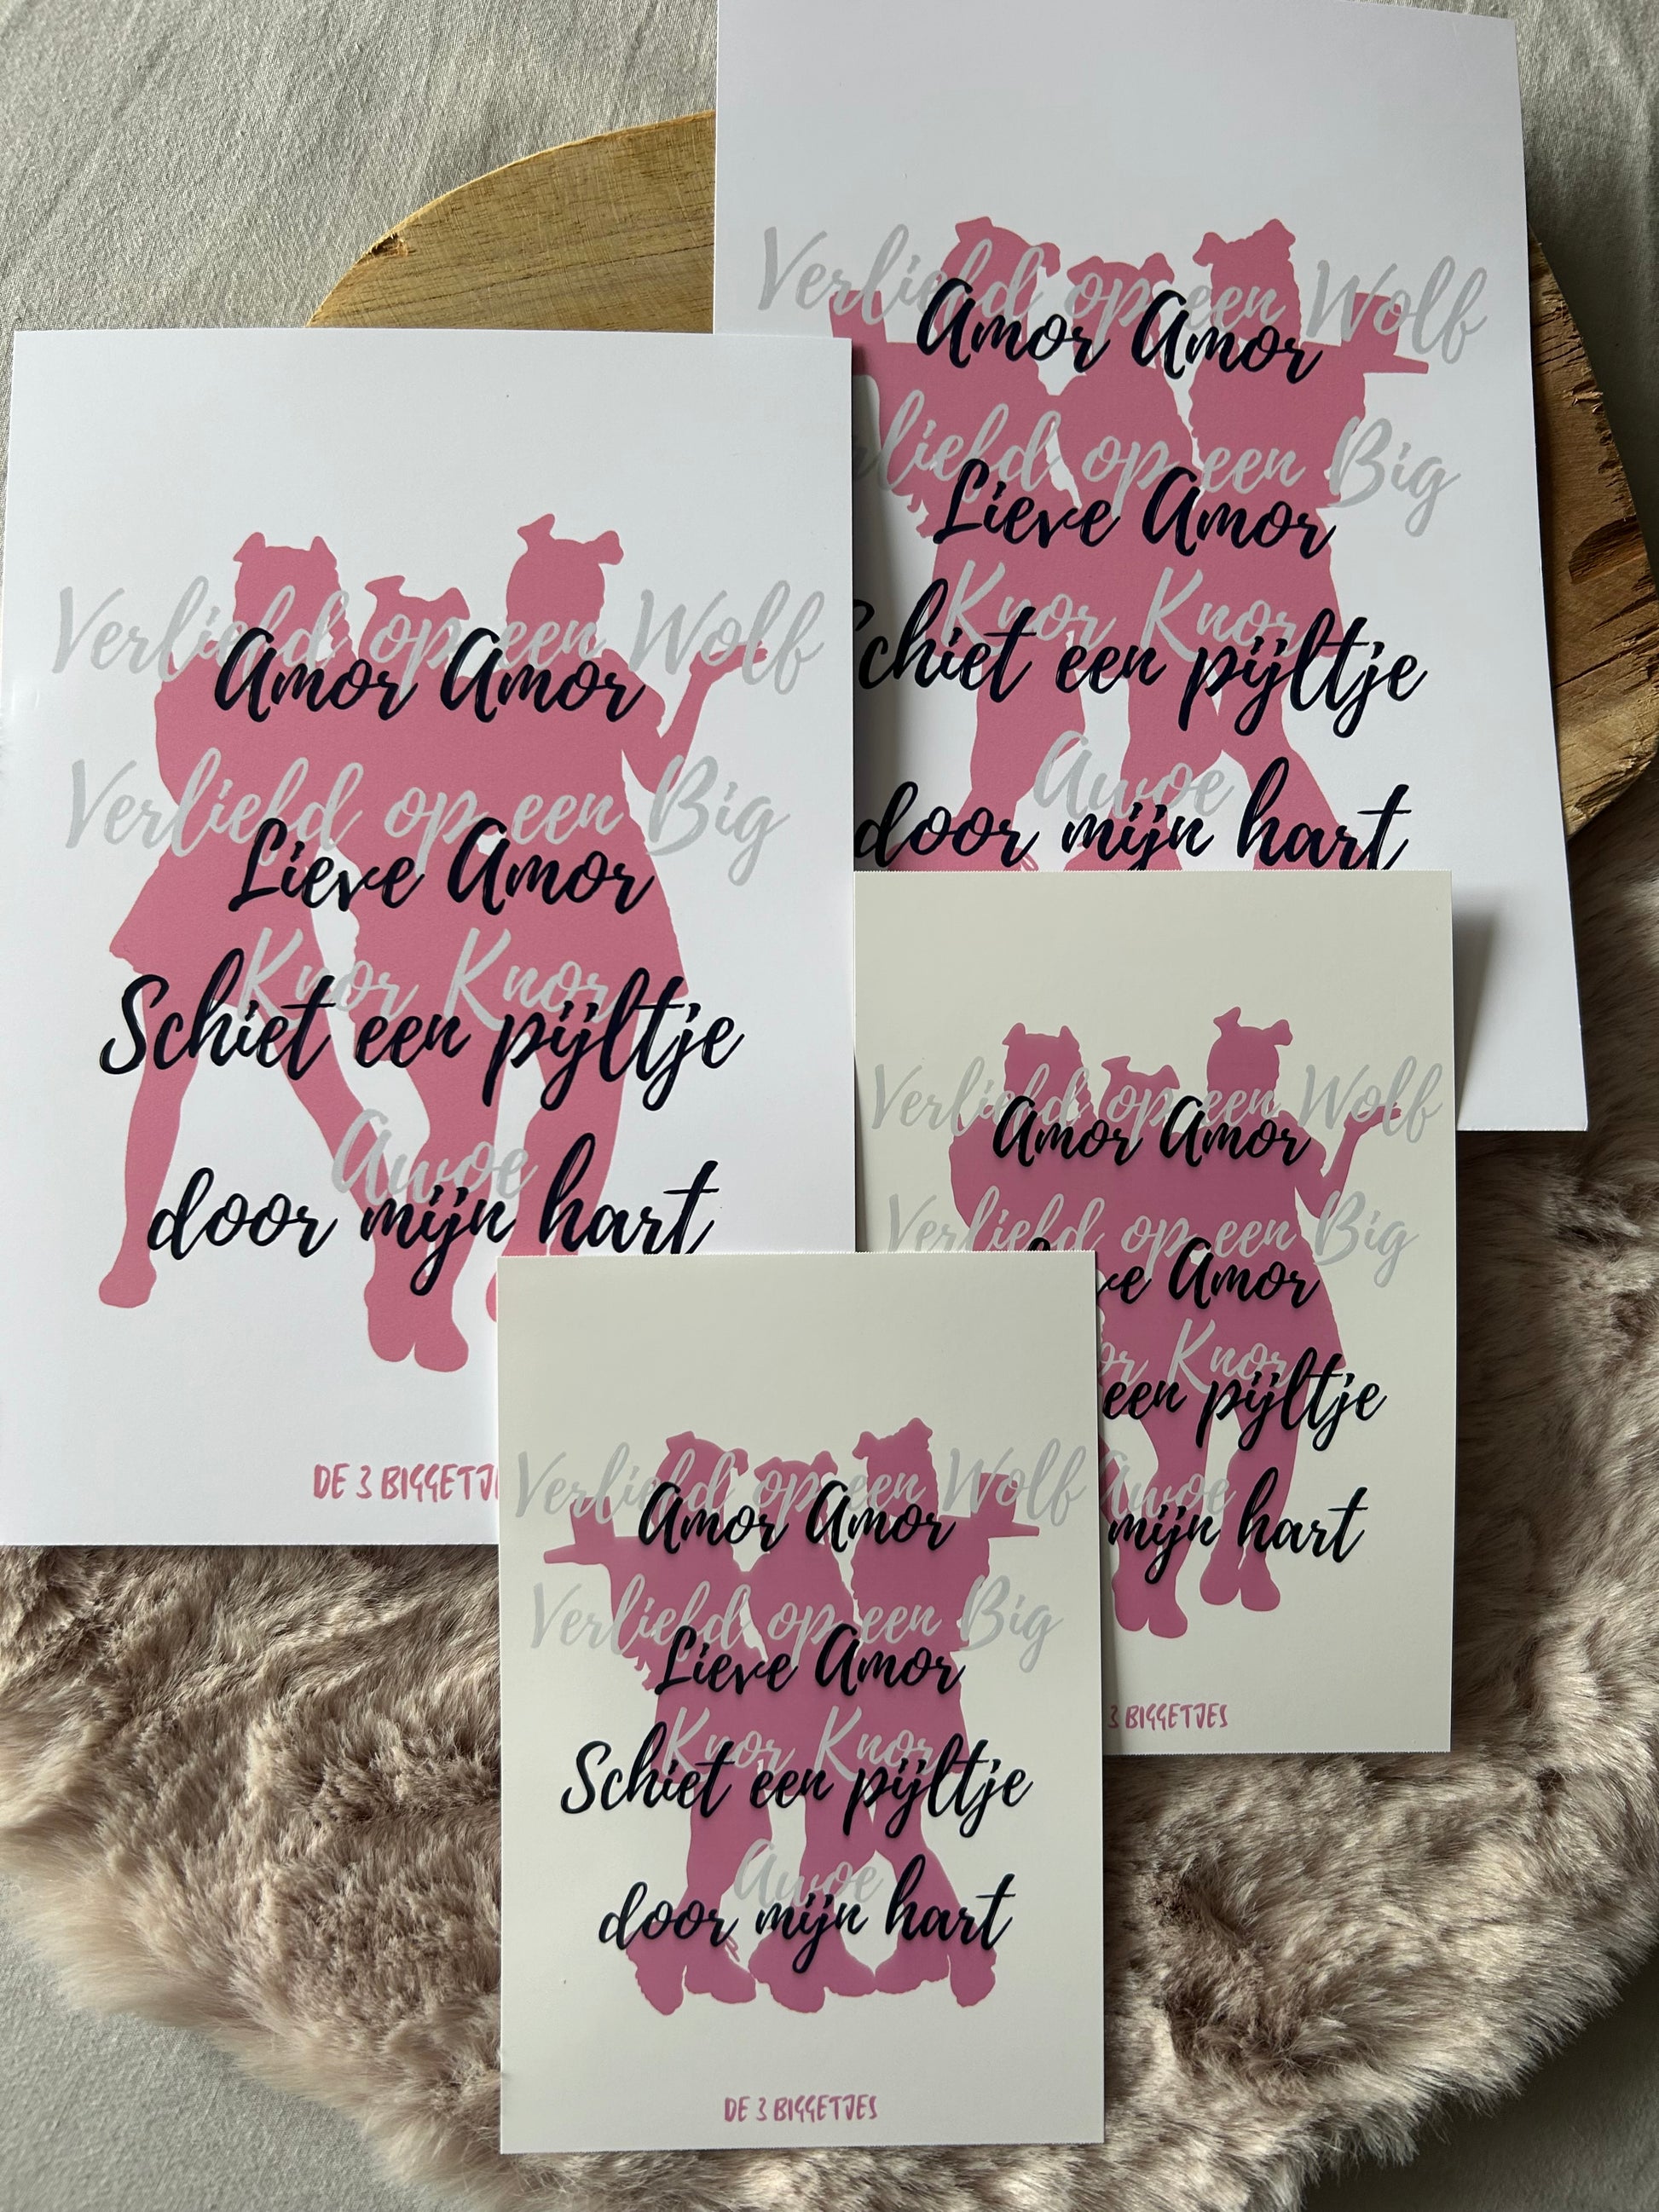 Verliefd op een Wolf
Amor Amor
rliefd op een Big
Lieve Amor
Knor Knor
Schiet een pijltje
Awoe
door mijn hart
Verliefd op een Wolf
Amor Amor
Verliefd op een Big
Lieve Amor
Knor Knor
Schiet een pijltje
Awoe
door mijn hart
DE 3 BIGGETJ
Verliefd op een Wolf
Amor Amor
Verliefd op een Big
ve Amor
or Knor
een pijltje
Awoe
mijn hart
3 BIGGETJES
Verliefd op een Wolf
Amor Amor
Verliefd op een Big
Lieve Amor
Knor Knor
Schiet een pijltje
Awoe
door mijn hart
DE 3 BIGGETJES